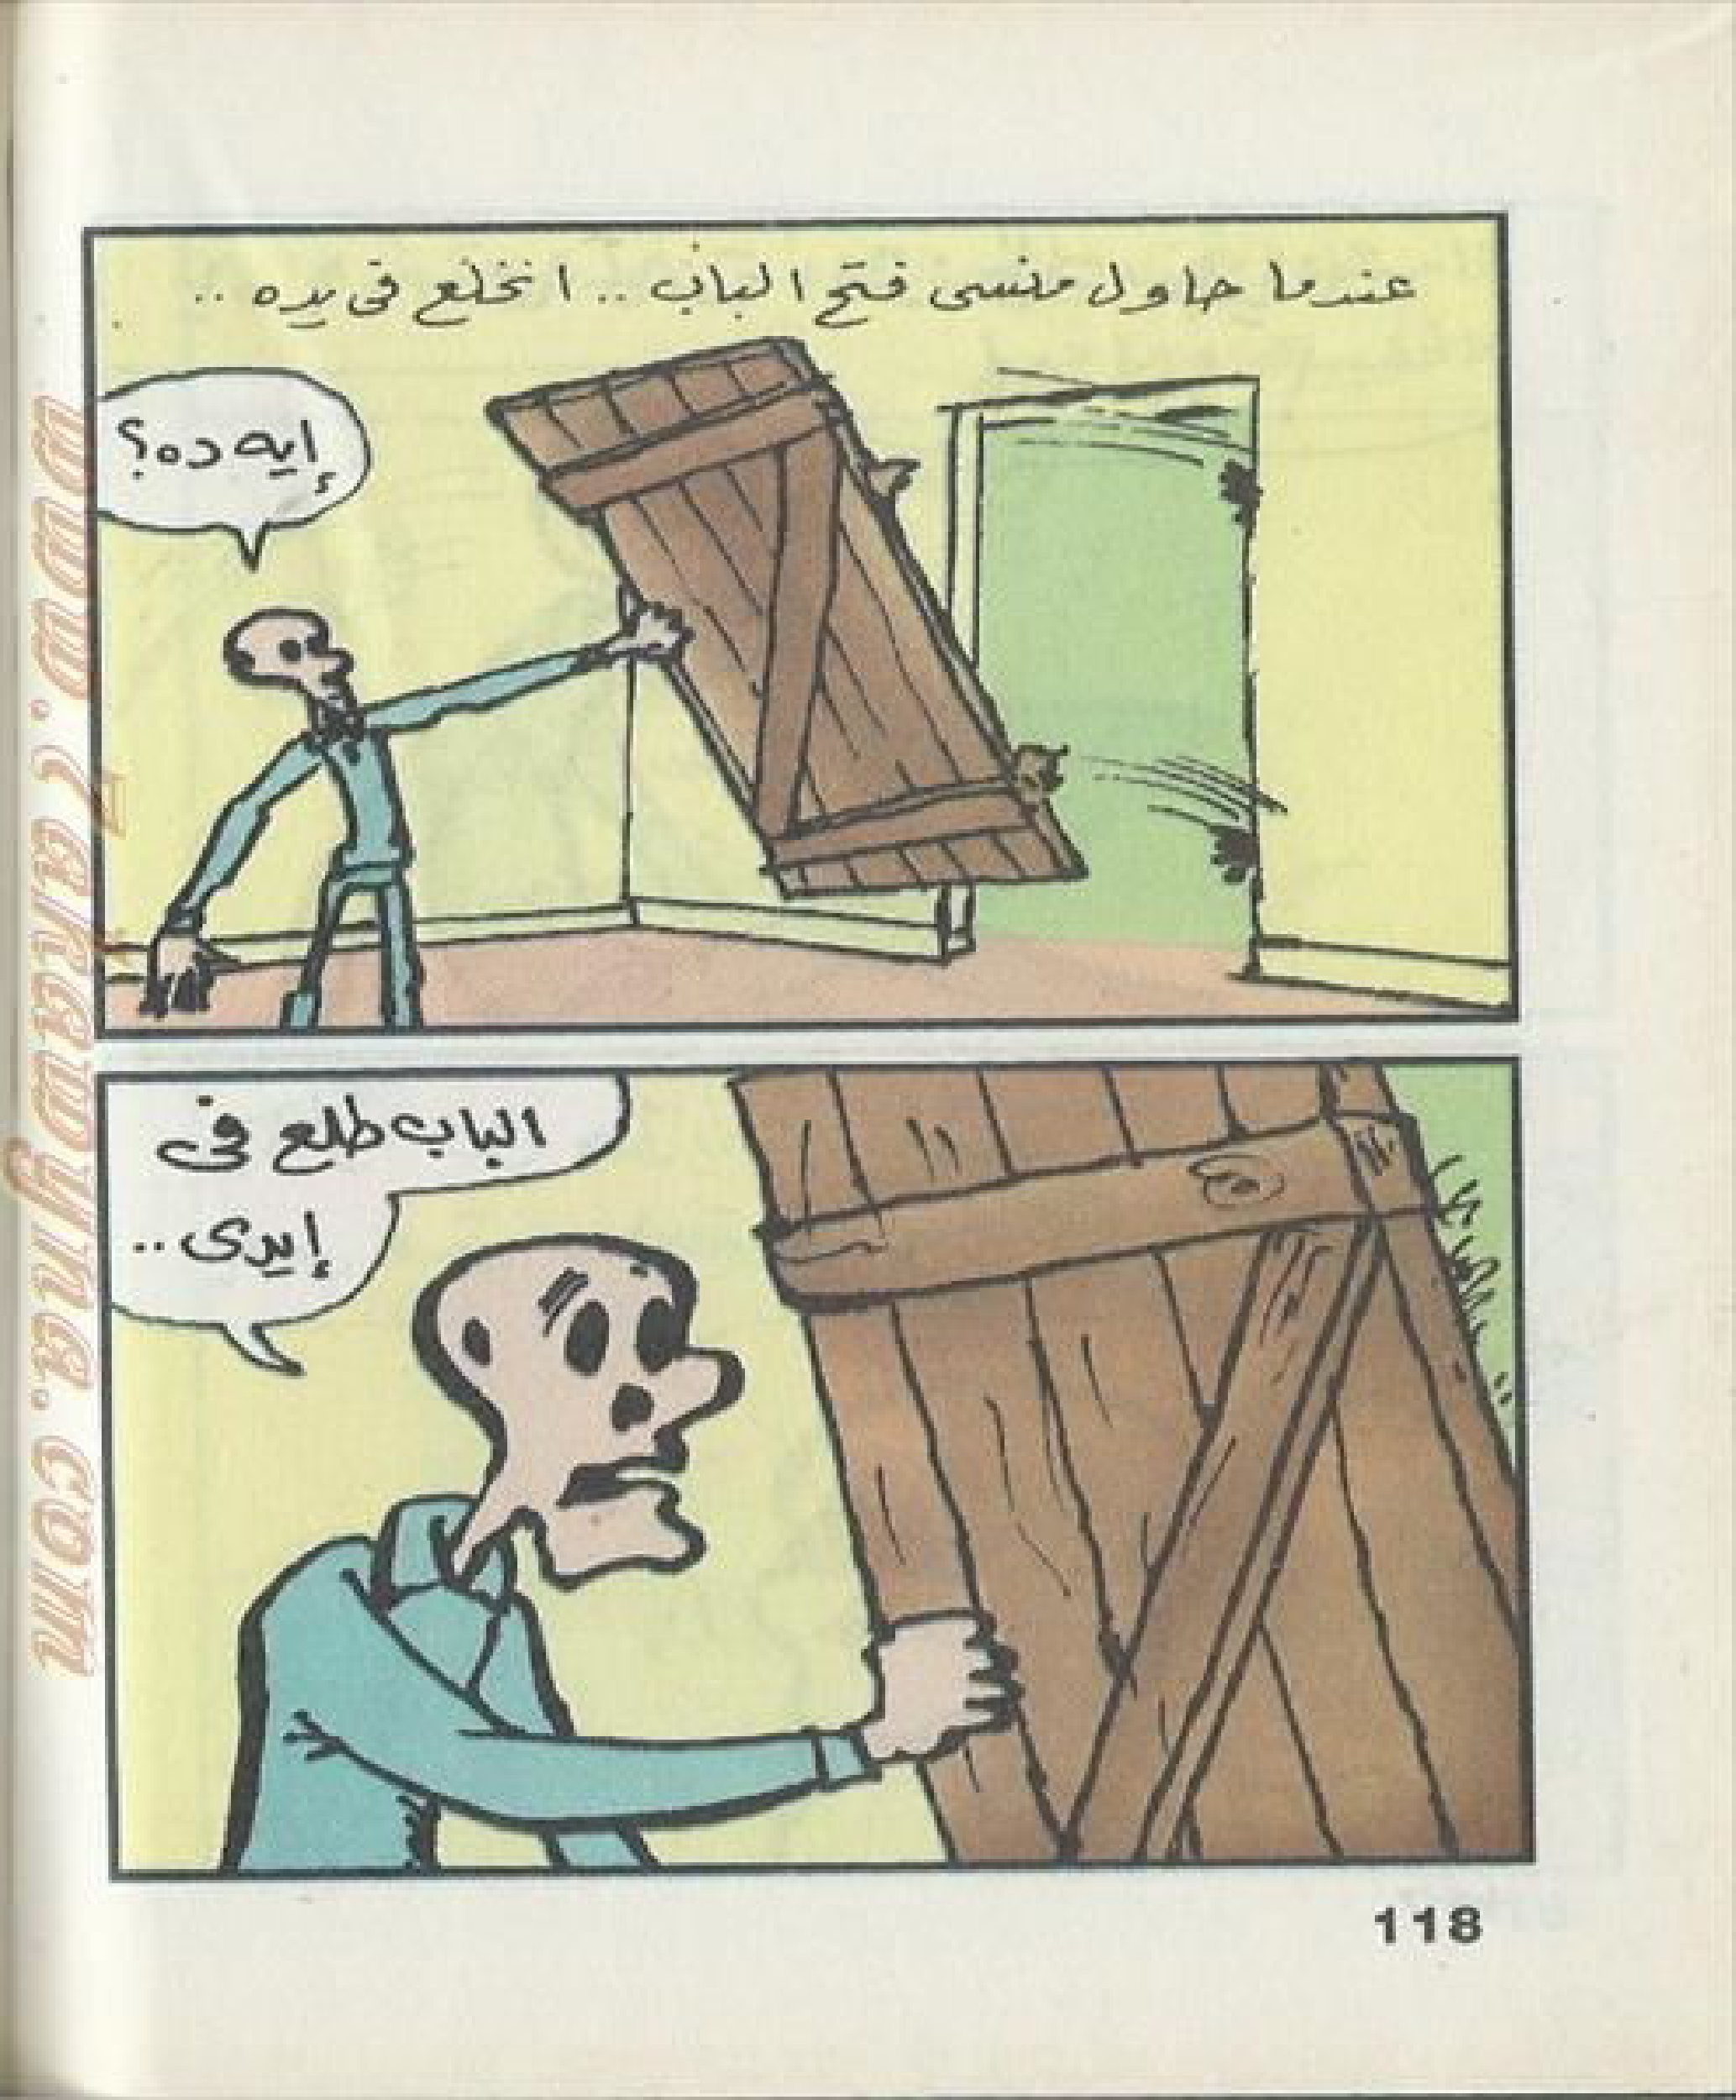 عندما حاول منسى فتح الباب .. انخلع فى يده ..
إيه ده؟
الباب طلع فى
إيدى ..
118
www.7araamyna.com